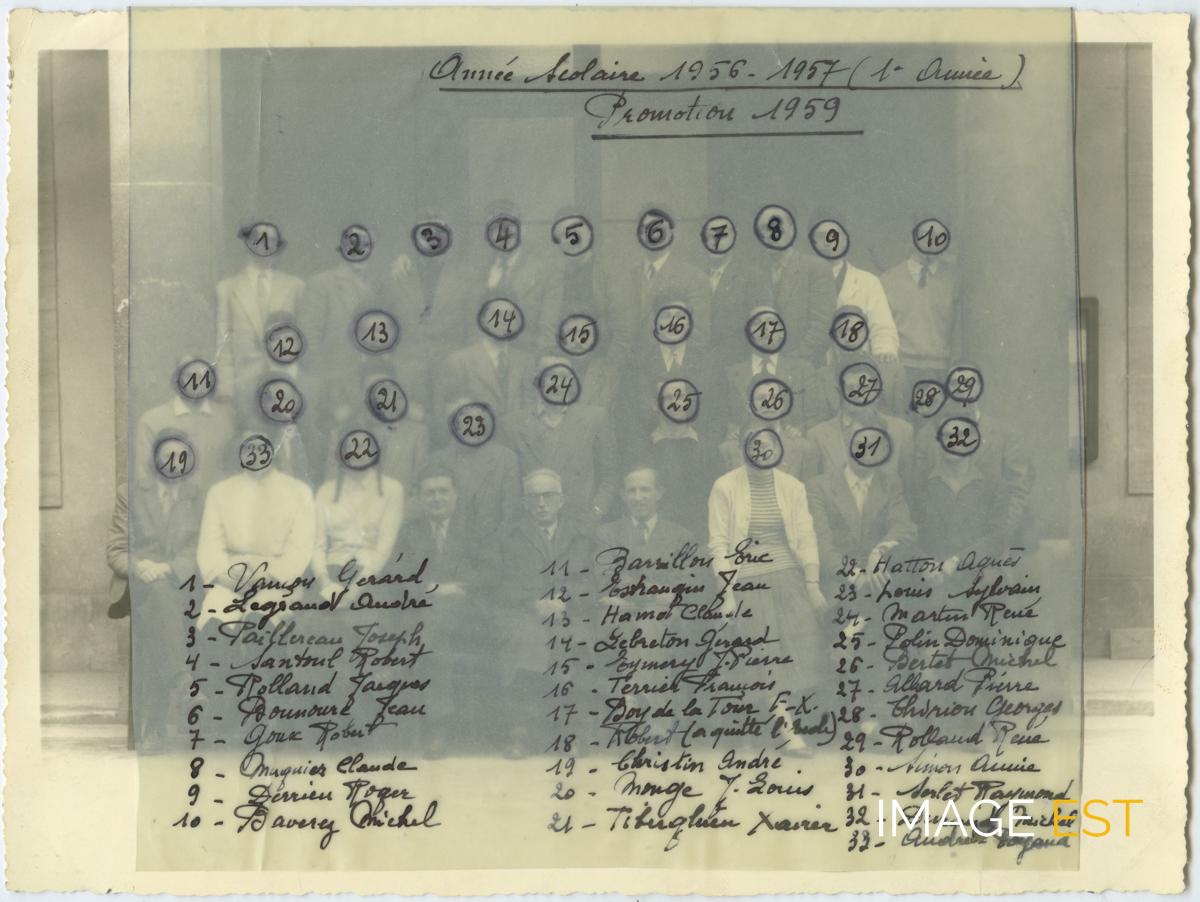 Année Scolaire 1956-1957 (1e Année)
Promotion 1959
1 2 3 4 5 6 7 8 9 10
11 12 13 14 15 16 17 18
20 21 23 24 25 26 27 28 29
19 33 22 30 31 32
1 - Gérard
2 - Legrand André
3 - Paillereau Joseph
4 - Santoul Robert
5 - Rolland Jacques
6 - Bounoure Jean
7 - Goux Robert
8 - Magnier Claude
9 - Derrien Roger
10 - Baverez Michel
11 - Barillon Eric
12 - Estrangin Jean
13 - Hamot Claude
14 - Lebreton Gérard
15 - Eymery J-Pierre
16 - Terrier François
17 - Boy de la Tour F-X.
18 - (a quitté l'Ecole)
19 - Christin André
20 - Monge J. Louis
21 - Tiberghien Xavier
22 - Hatton Agnès
23 - Louis Sylvain
24 - Martin René
25 - Polin Dominique
26 - Bertet Michel
27 - Allard Pierre
28 - Thirion Georges
29 - Rolland René
30 - Simon Annie
31 - Sertet Raymond
32 -
33 -
IMAGE EST